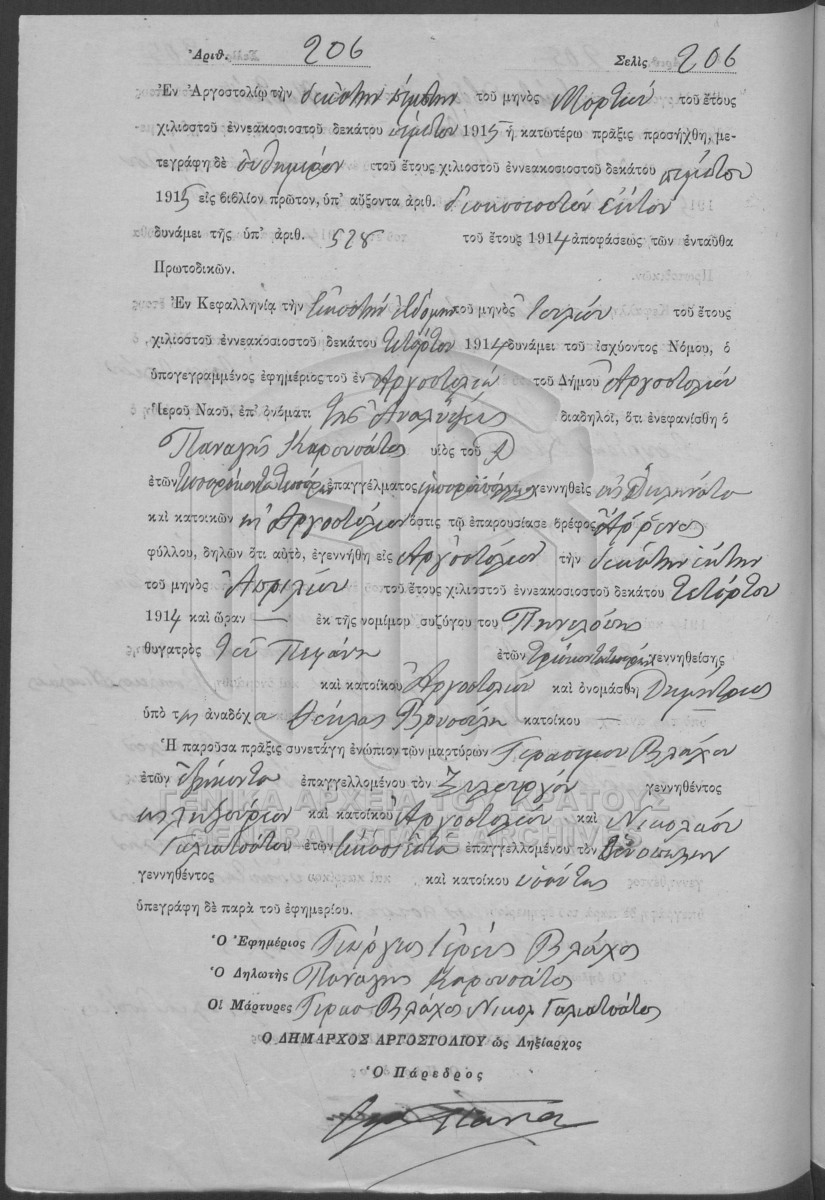 Ἀριθ. 206 Σελὶς 206
Ἐν Ἀργοστολίῳ τὴν δεκάτην πέμπτην τοῦ μηνὸς Μαρτίου τοῦ ἔτους
χιλιοστοῦ ἐννεακοσιοστοῦ δεκάτου πέμπτου 1915 ἡ κατωτέρω πρᾶξις προσήχθη, με-
τεγράφη δὲ αὐθημερόν τοῦ ἔτους χιλιοστοῦ ἐννεακοσιοστοῦ δεκάτου πέμπτου
1915 εἰς βιβλίον πρῶτον, ὑπ' αὔξοντα ἀριθ. διακοσιοστόν ἕκτον
δυνάμει τῆς ὑπ' ἀριθ. 528 τοῦ ἔτους 1914 ἀποφάσεως τῶν ἐνταῦθα
Πρωτοδικῶν.
Ἐν Κεφαλληνίᾳ τὴν εἰκοστήν ἑβδόμην τοῦ μηνὸς Ἰουλίου τοῦ ἔτους
χιλιοστοῦ ἐννεακοσιοστοῦ δεκάτου τετάρτου 1914 δυνάμει τοῦ ἰσχύοντος Νόμου, ὁ
ὑπογεγραμμένος ἐφημέριος τοῦ ἐν Ἀργοστολίῳ τοῦ Δήμου Ἀργοστολίου
Ἱεροῦ Ναοῦ, ἐπ' ὀνόματι τῆς Ἀναλήψεως διαδηλοῖ, ὅτι ἐνεφανίσθη ὁ
Παναγῆς Καρουσάτος υἱὸς τοῦ
ἐτῶν ἐπαγγέλματος γεννηθεὶς εἰς Διλινάτα
καὶ κατοικῶν εἰς Ἀργοστόλιον ὅστις τῷ ἐπαρουσίασε βρέφος ἄρρενος
φύλλου, δηλῶν ὅτι αὐτὸ, ἐγεννήθη εἰς Ἀργοστόλιον τὴν δεκάτην ἕκτην
τοῦ μηνὸς Ἀπριλίου τοῦ ἔτους χιλιοστοῦ ἐννεακοσιοστοῦ δεκάτου τετάρτου
1914 καὶ ὥραν — ἐκ τῆς νομίμου συζύγου του Πηνελόπης
θυγατρὸς τοῦ ἐτῶν γεννηθείσης
καὶ κατοίκου Ἀργοστολίου καὶ ὀνομάσθη Δημήτριος
ὑπὸ τῆς ἀναδόχα Θέκλας κατοίκου —
Ἡ παροῦσα πρᾶξις συνετάγη ἐνώπιον τῶν μαρτύρων Γερασίμου Βλάχου
ἐτῶν ἑξήκοντα ἐπαγγελλομένου τὸν Ξυλουργόν γεννηθέντος
εἰς Ληξούριον καὶ κατοίκου Ἀργοστολίου καὶ Νικολάου
Γαλιατσάτου ἐτῶν ἐπαγγελλομένου τὸν
γεννηθέντος καὶ κατοίκου
ὑπεγράφη δὲ παρὰ τοῦ ἐφημερίου.
Ὁ Ἐφημέριος Γεώργιος Ἱερεὺς Βλάχος
Ὁ Δηλωτὴς Παναγῆς Καρουσάτος
Οἱ Μάρτυρες Γερασ Βλάχος Νικολ Γαλιατσάτος
Ο ΔΗΜΑΡΧΟΣ ΑΡΓΟΣΤΟΛΙΟΥ ὡς Ληξίαρχος
Ὁ Πάρεδρος
ΓΕΝΙΚΑ ΑΡΧΕΙΑ ΤΟΥ ΚΡΑΤΟΥΣ
GENERAL STATE ARCHIVES